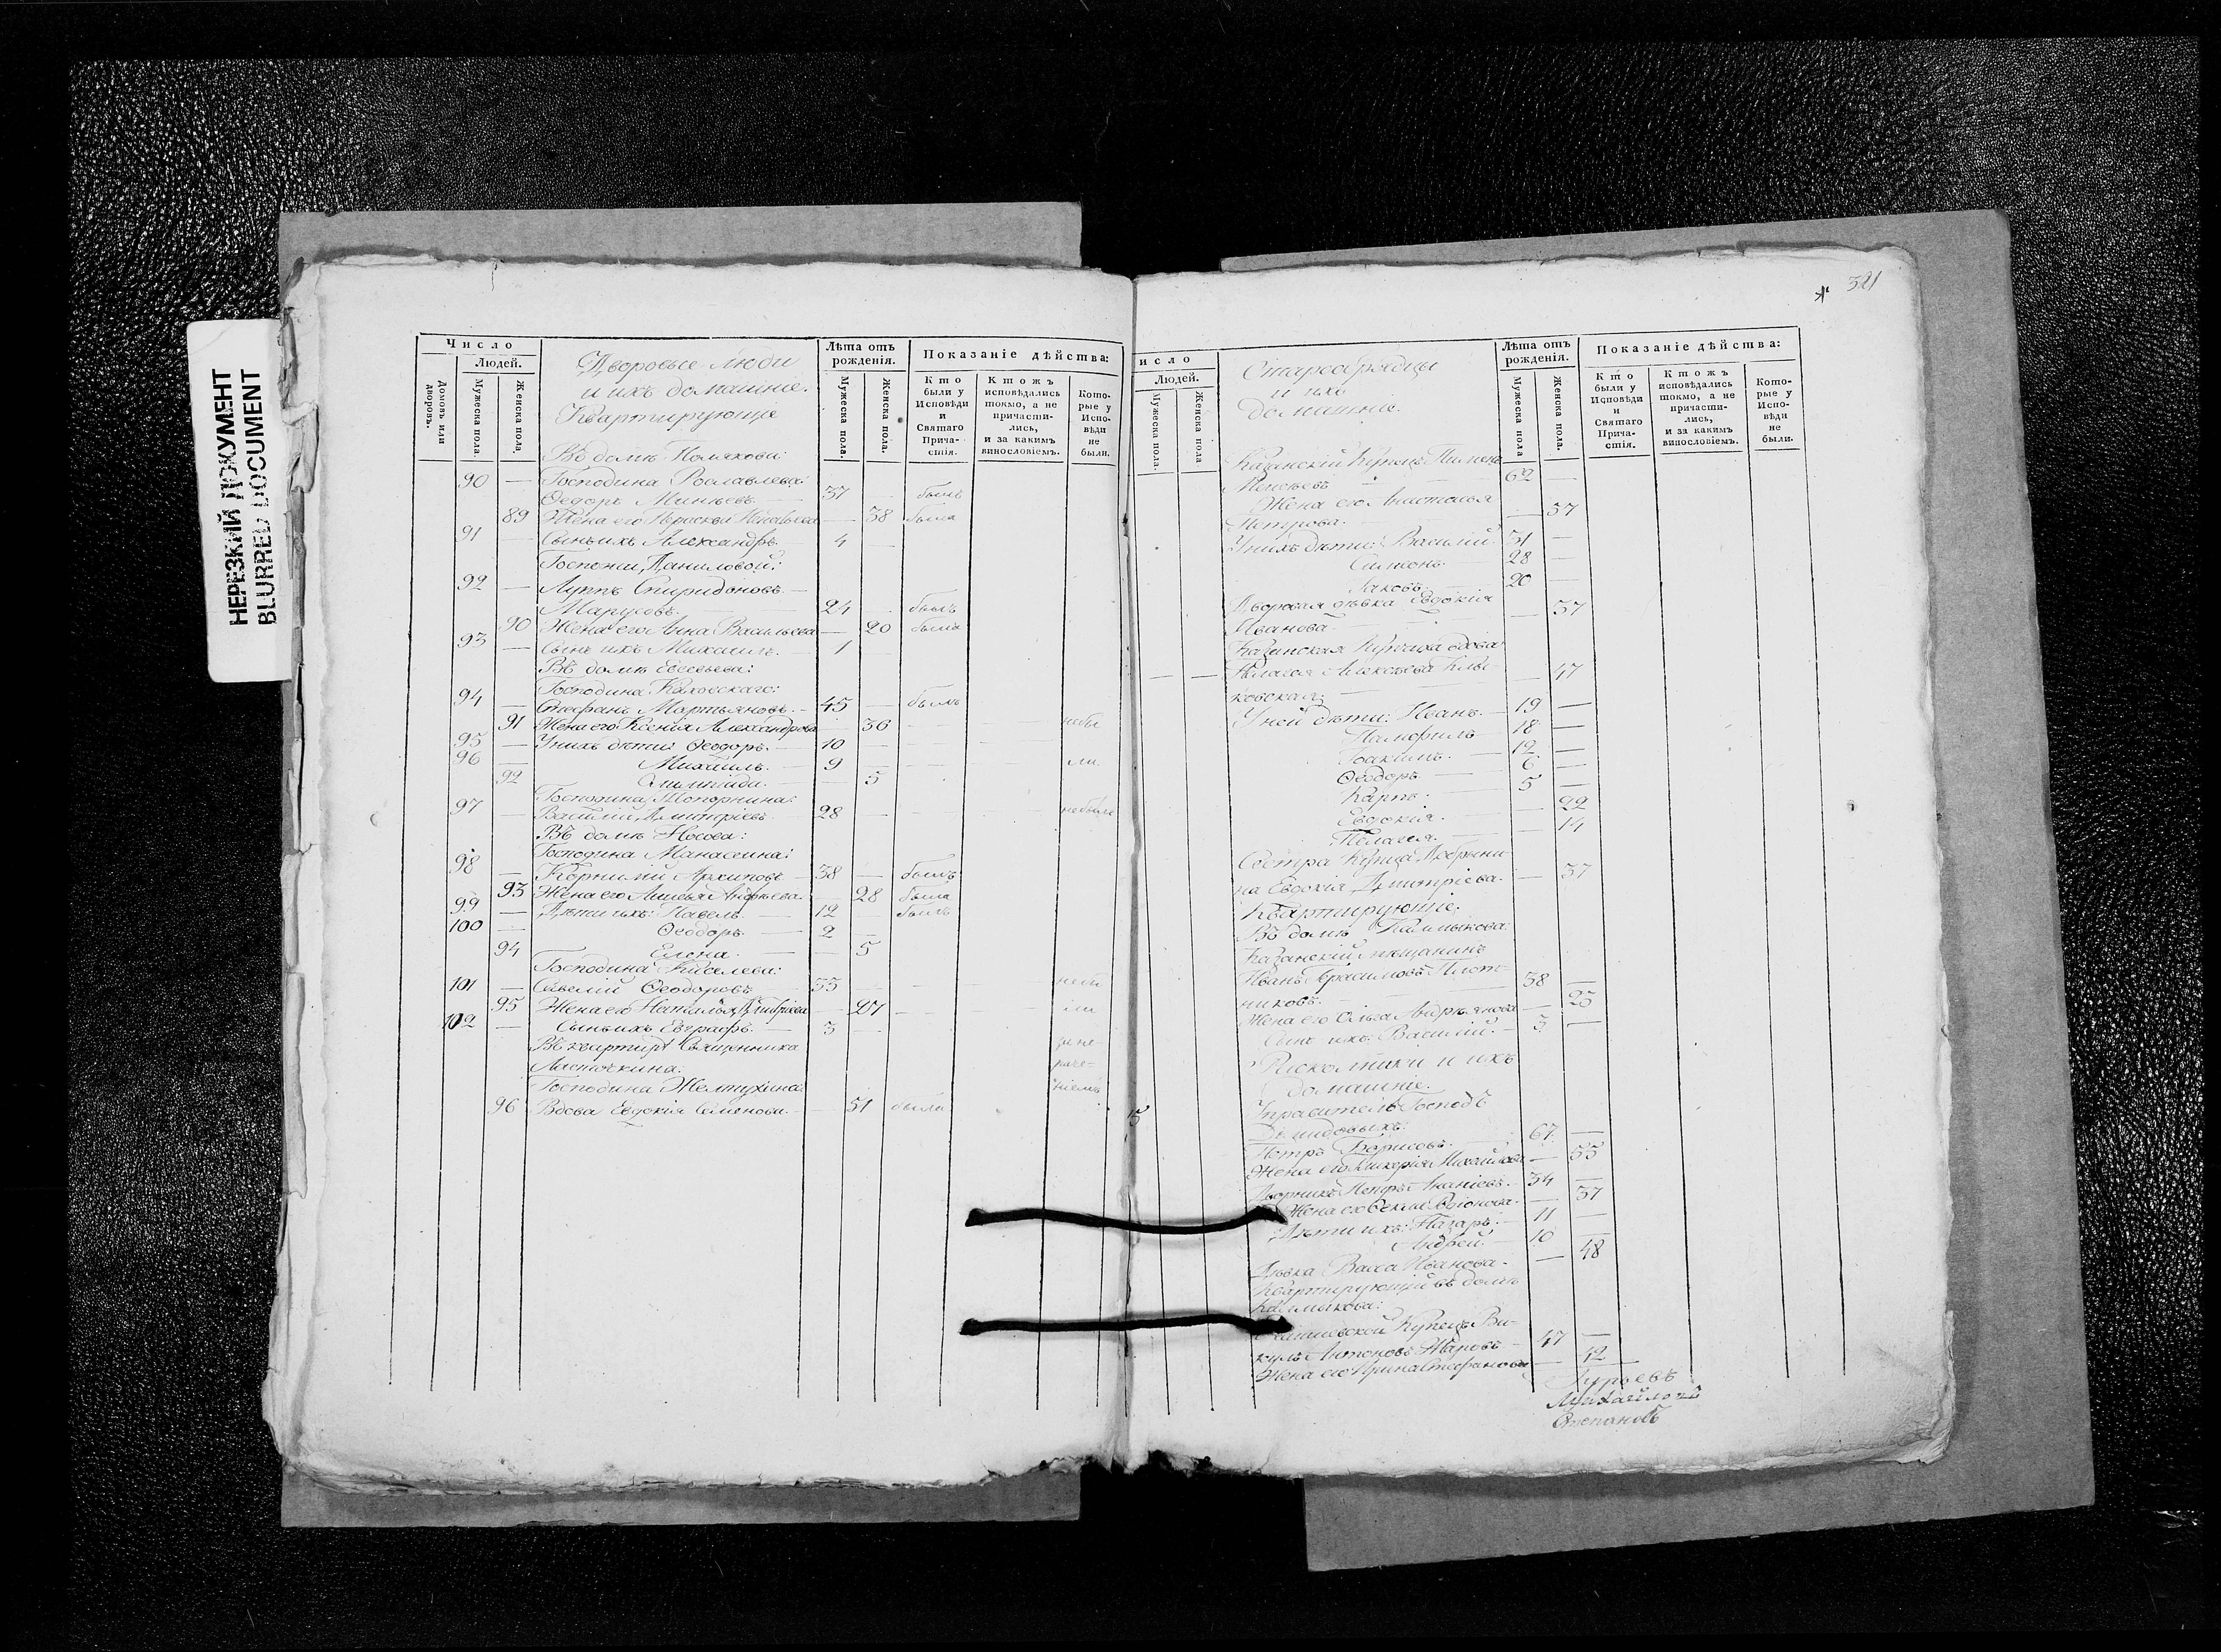 НЕРЕЗКИЙ ДОКУМЕНТ
BLURRED DOCUMENT
Число
Людей.
Домовъ или дворовъ.
Мужеска пола.
Женска пола.
Дворовые люди
и ихъ домашніе.
Квартирующіе
Лѣта отъ рожденія.
Мужеска пола.
Женска пола.
Показаніе дѣйства:
Кто были у Исповѣди и Святаго Причастія.
Ктожъ исповѣдались токмо, а не причастились, и за какимъ винословіемъ.
Которые у Исповѣди не были.
Въ домѣ Полякова:
90 — Господина Рославлева:
Ѳедоръ Минѣевъ — 37 — былъ
89 Жена его Параскева — 38 была
91 — Сынъ ихъ Александръ 4 —
Госпожи Даниловой:
92 — Луппъ Спиридоновъ
Марусовъ. 24 — былъ
90 Жена его Анна Васильева — 20 была
93 — Сынъ ихъ Михаилъ. 1 —
Въ домѣ Евсевьева:
Господина Каховскаго:
94 — Стефанъ Мартьяновъ. 45 — былъ
91 Жена его Ксенія Александрова 36 — небы
95 — У нихъ дѣти: Ѳеодоръ. 10 —
96 — Михаилъ. 9 — ли
92 Олимпіада. — 5
Господина
97 — Василій Дмитріевъ 28 — небылъ
Въ домѣ Носова:
Господина Манасеина:
98 — Корнилій Архиповъ 38 — былъ
93 Жена его Андрѣева 28 была
99 — Дѣти ихъ: Павелъ. 12 — былъ
100 — Ѳеодоръ. 2 —
94 Елена. — 5
Господина Киселева:
101 — Савелій Ѳеодоровъ 33 — небы
95 Жена его Наталья Дмитріева — 27 — ли
102 — Сынъ ихъ Евграфъ. 3 —
Въ квартирѣ Священника
Ласточкина:
Господина Желтухина:
96 Вдова Евдокія Семенова. 51 была
321
исло
Людей.
Мужеска пола.
Женска пола
Старообрядцы
и ихъ
домашніе.
Лѣта отъ рожденія.
Мужеска пола
Женска пола.
Показаніе дѣйства:
Кто были у Исповѣди и Святаго Причастія.
Ктожъ исповѣдались токмо, а не причастились, и за какимъ винословіемъ.
Которые у Исповѣди не были.
Казанскій Купецъ Пименъ
62 —
Жена его Анастасья
Петрова. — 57
У нихъ дѣти: Василій 31 —
Симеонъ 28 —
Іаковъ 20 —
Дворовая дѣвка Евдокія
Иванова — 37
Казанская Купчиха вдова
Пелагея Алексѣева
47
У ней дѣти: Иванъ. 19 —
Памфилъ 18 —
Іоакимъ. 12 —
Ѳеодоръ 6 —
Карпъ. 5 —
Евдокія. — 22
Пелагея. — 14
Сестра Купца Добрыни-
на Евдокія Дмитріева. — 37
Квартирующіе.
Въ домѣ Калмыкова:
Казанскій мѣщанинъ
Иванъ Герасимовъ Плот-
никовъ. 38 —
Жена его Ольга Андреянова — 25
Сынъ ихъ: Василій. 3 —
Раскольники и ихъ
домашніе.
Управитель Господъ
Демидовыхъ:
Петръ Борисовъ. 67 —
Жена его Гликерія Михайлова — 55
Дворникъ Петръ Ананіевъ. 34 —
Жена его — 37
Дѣти ихъ: Назаръ. 11 —
Андрей. 10 —
Дѣвка Васса Иванова. — 48
Квартирующій въ домѣ
Калмыкова:
Купецъ Ви-
кулъ Антоновъ Жаровъ 47 —
Жена его Ирина Стефанова — 42
Гурьевъ
Михайло
Степановъ